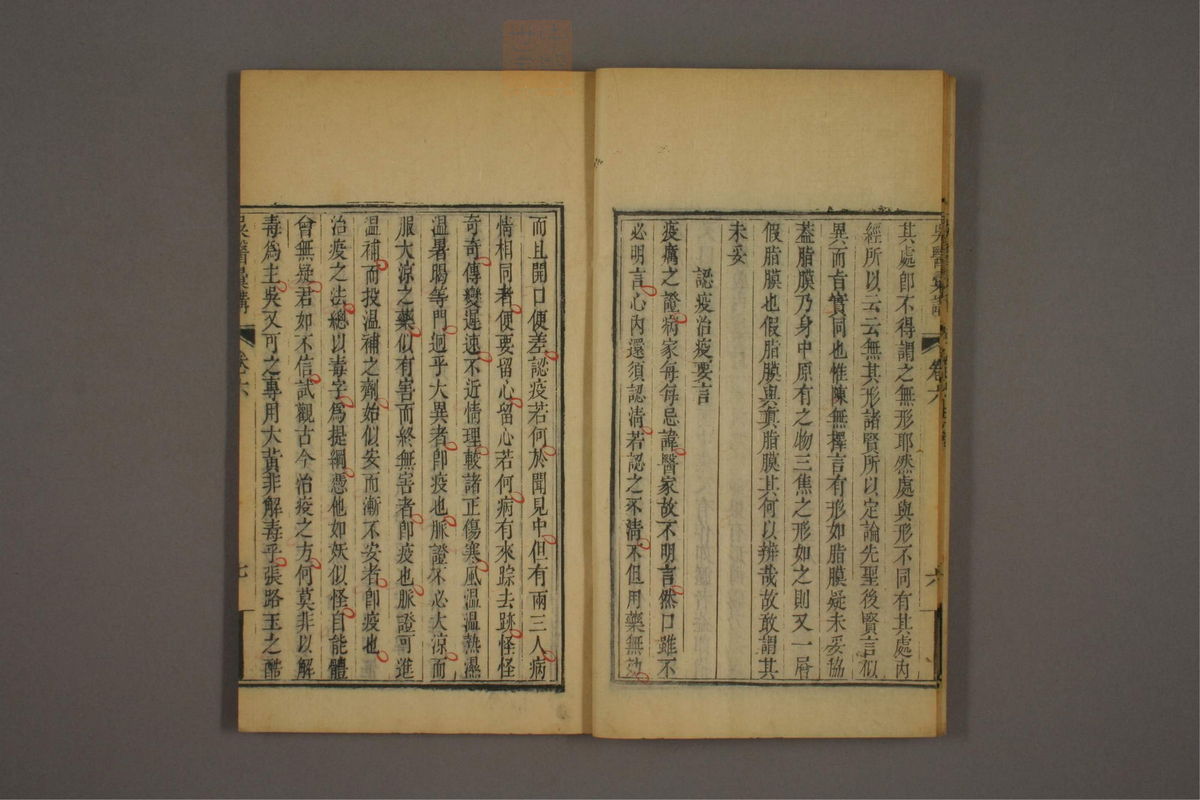 其處卽不得謂之無形耶然處與形不同有其處內
經所以云云無其形諸賢所以定論先聖後賢言似
異而旨實同也惟陳無擇言有形如脂膜疑未妥協
蓋脂膜乃身中原有之物三焦之形如之則又一層
假脂膜也假脂膜與眞脂膜其何以辨哉故敢謂其
未妥
認疫治疫要言
疫癘之證病家每每忌諱醫家故不明言然口雖不
必明言心內還須認淸若認之不淸不但用藥無効
而且開口便差認疫若何於聞見中但有兩三人病
情相同者便要留心留心若何病有來踪去跡怪怪
奇奇傳變遲速不近情理較諸正傷寒風溫溫熱濕
溫暑暍等門迥乎大異者卽疫也脈證不必大涼而
服大涼之藥似有害而終無害者卽疫也脈證可進
溫補而投溫補之劑始似安而漸不安者卽疫也
治疫之法總以毒字爲提綱憑他如妖似怪自能體
會無疑君如不信試觀古今治疫之方何莫非以解
毒爲主吳又可之專用大黃非解毒乎張路玉之酷
吳醫彙講
卷六
七
吳醫彙講
卷六
六